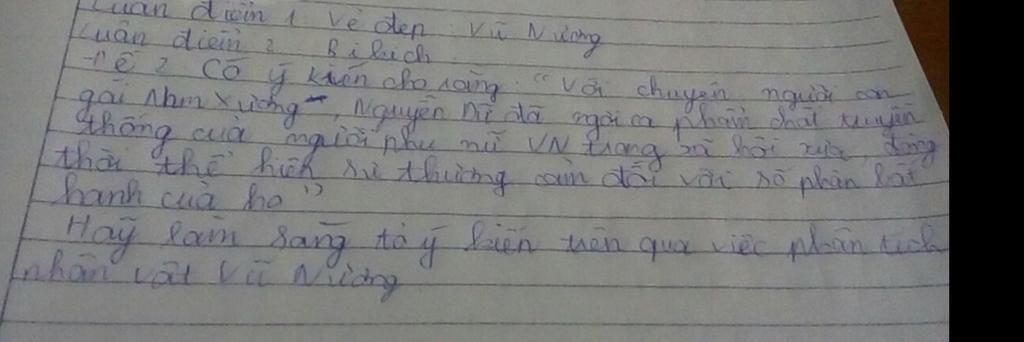 Luận điểm 1 Vẻ đẹp Vũ Nương
Luận điểm 2 Bi kịch
Đề 2 Có ý kiến cho rằng "Với chuyện người con
gái Nam Xương, Nguyễn Dữ đã ngợi ca phẩm chất truyền
thống của người phụ nữ VN trong xã hội xưa, đồng
thời thể hiện sự thương cảm đối với số phận bất
hạnh của họ"
Hãy làm sáng tỏ ý kiến trên qua việc phân tích
nhân vật Vũ Nương